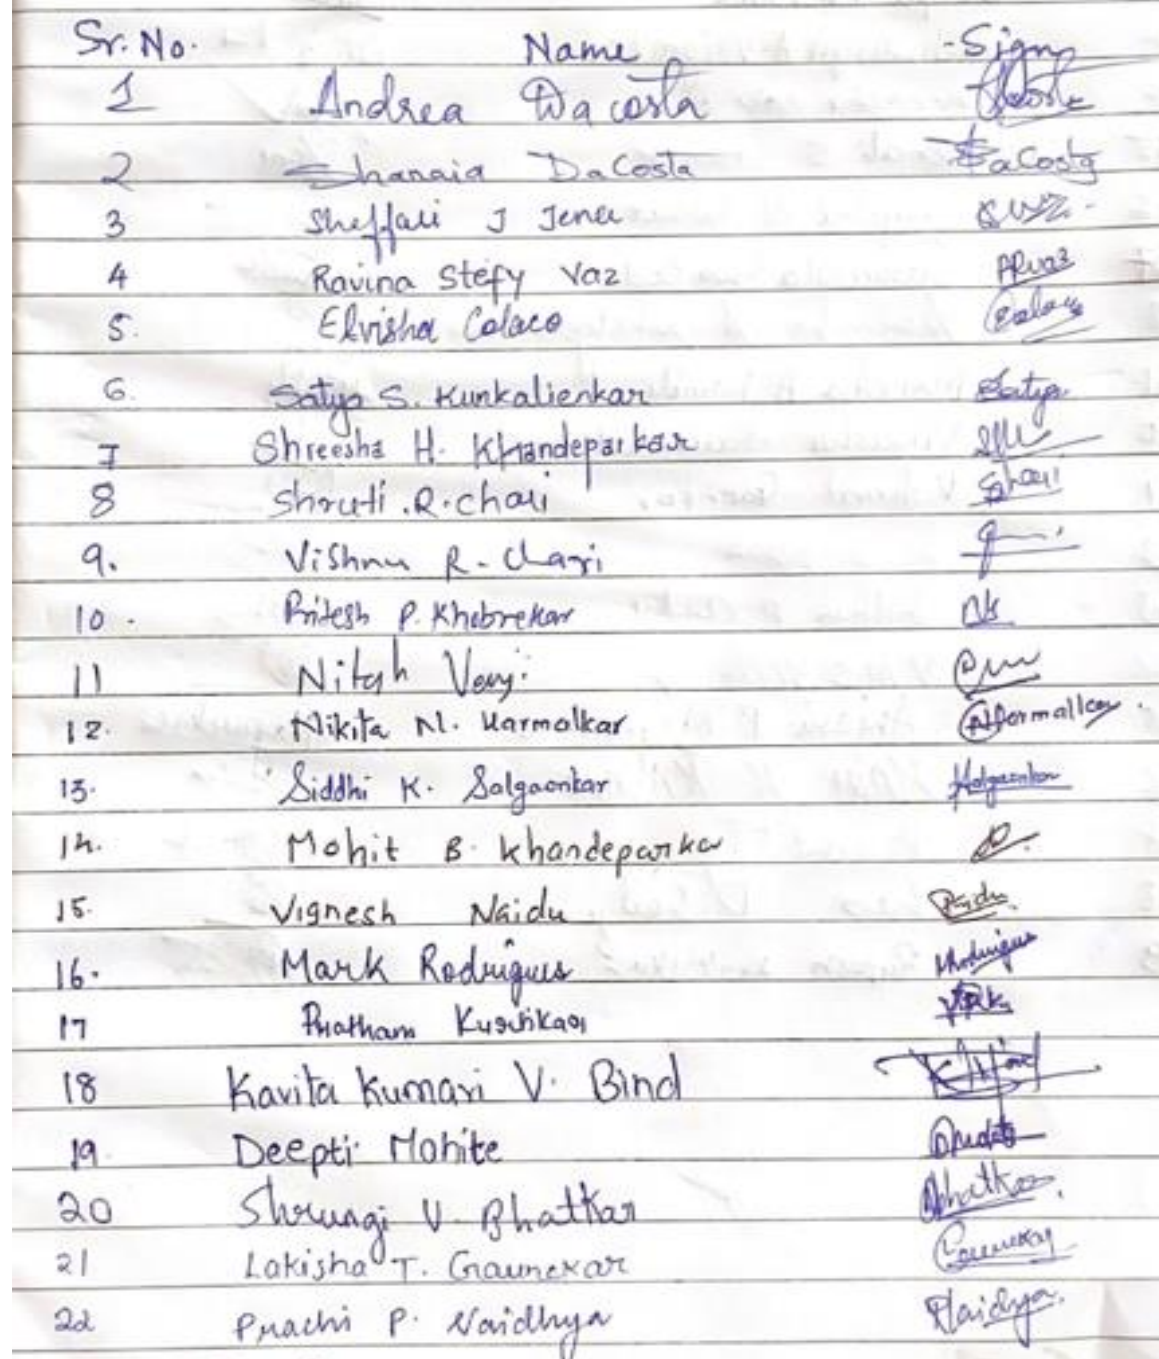 Sr. No. Name Sign
1 Andrea Da costa
2 Shanaia DaCosta DaCosta
3 Sheffali J Jena
4 Ravina Stefy Vaz
5. Elvisha Colaco
6. Satya S. Kunkalienkar Satya
7 Shreesha H. Khandeparkar
8 Shruti .R. chari chari
9. Vishnu R. Chari
10. Pritesh P. Khobrekar
11 Nitesh
12. Nikita N. Harmalkar
13. Siddhi K. Salgaonkar Salgaonkar
14. Mohit B. Khandeparkar
15. Vignesh Naidu Naidu
16. Mark Rodrigues Rodrigues
17 Pratham
18 Kavita Kumari V. Bind
19. Deepti Mohite
20 Shrungi V. Bhatkar Bhatkar
21 Lakisha T. Gaunekar Gaunekar
22 Prachi P. Naidhya